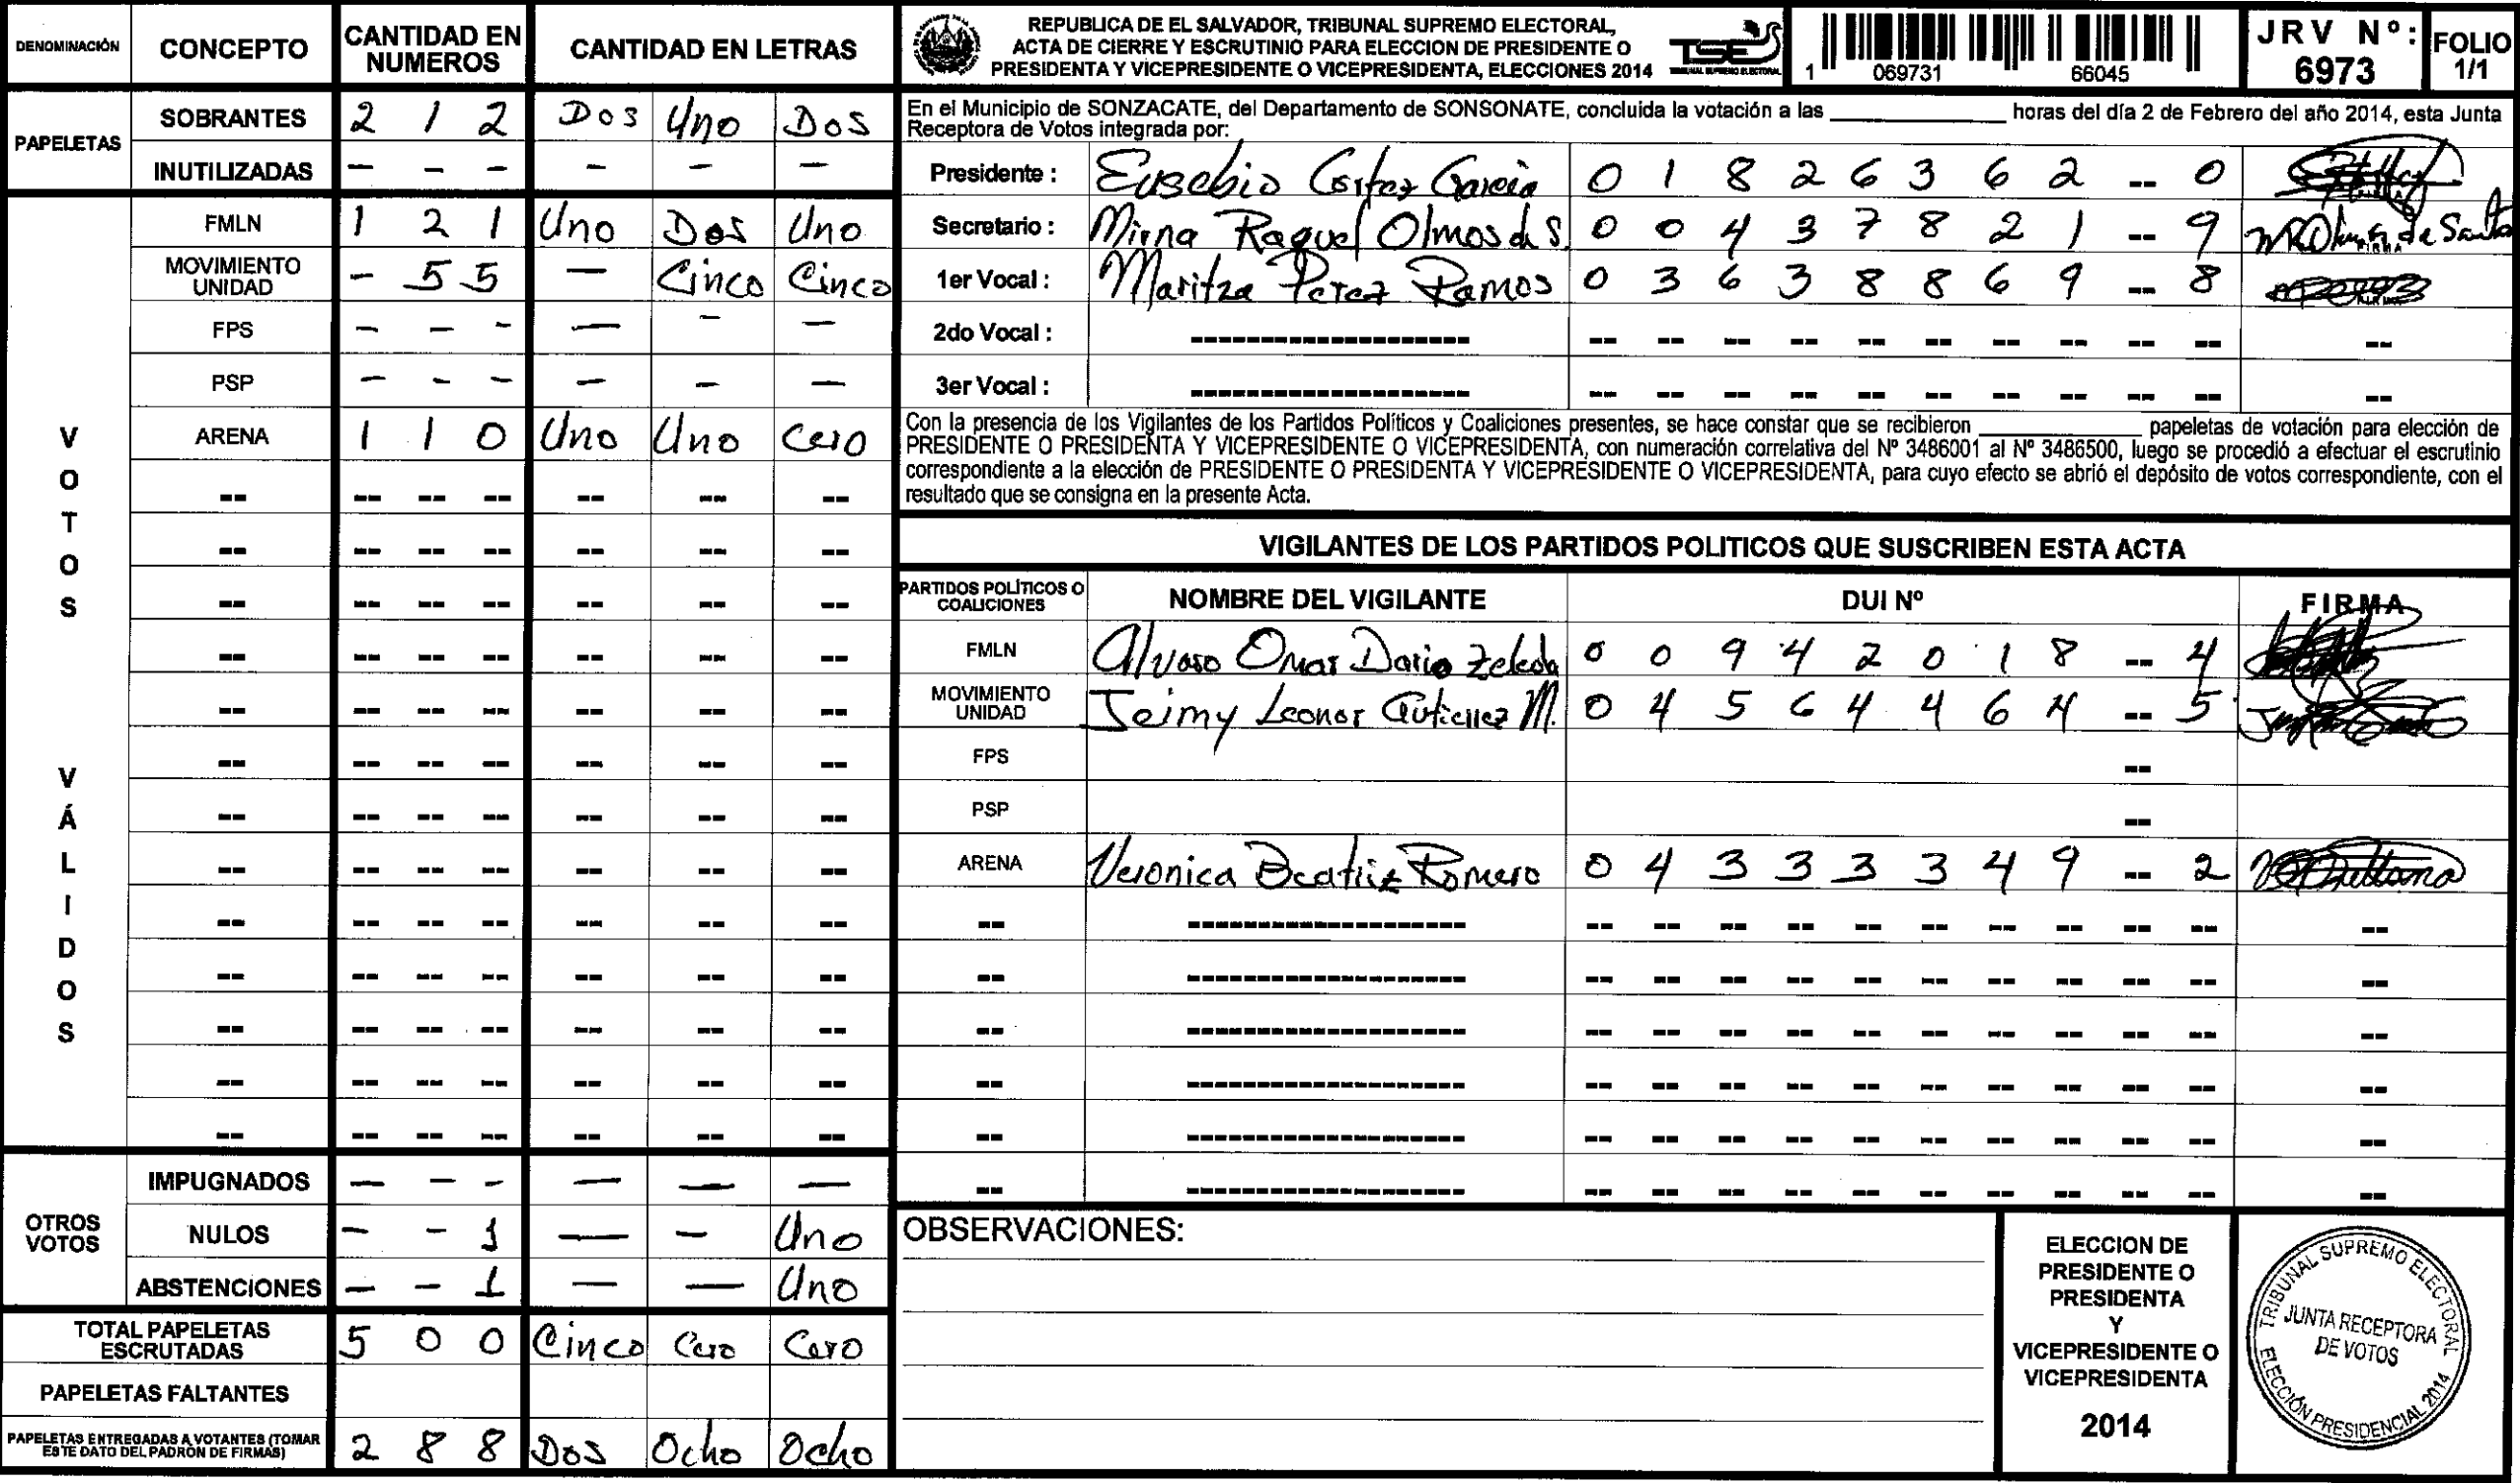 DENOMINACIÓN CONCEPTO CANTIDAD EN NUMEROS CANTIDAD EN LETRAS
PAPELETAS
SOBRANTES 2 1 2 Dos Uno Dos
INUTILIZADAS - - - - - -
VOTOS VÁLIDOS
FMLN 1 2 1 Uno Dos Uno
MOVIMIENTO UNIDAD - 5 5 - Cinco Cinco
FPS - - - - - -
PSP - - - - - -
ARENA 1 1 0 Uno Uno Cero
-- -- -- -- -- -- --
-- -- -- -- -- -- --
-- -- -- -- -- -- --
-- -- -- -- -- -- --
-- -- -- -- -- -- --
-- -- -- -- -- -- --
-- -- -- -- -- -- --
-- -- -- -- -- -- --
-- -- -- -- -- -- --
-- -- -- -- -- -- --
-- -- -- -- -- -- --
-- -- -- -- -- -- --
-- -- -- -- -- -- --
OTROS VOTOS
IMPUGNADOS - - - - - -
NULOS - - 1 - - Uno
ABSTENCIONES - - 1 - - Uno
TOTAL PAPELETAS ESCRUTADAS 5 0 0 Cinco Cero Cero
PAPELETAS FALTANTES
PAPELETAS ENTREGADAS A VOTANTES (TOMAR ESTE DATO DEL PADRÓN DE FIRMAS) 2 8 8 Dos Ocho Ocho
REPUBLICA DE EL SALVADOR, TRIBUNAL SUPREMO ELECTORAL,
ACTA DE CIERRE Y ESCRUTINIO PARA ELECCION DE PRESIDENTE O
PRESIDENTA Y VICEPRESIDENTE O VICEPRESIDENTA, ELECCIONES 2014
TSE
TRIBUNAL SUPREMO ELECTORAL
1 069731 66045
JRV Nº: 6973
FOLIO 1/1
En el Municipio de SONZACATE, del Departamento de SONSONATE, concluida la votación a las ____________ horas del día 2 de Febrero del año 2014, esta Junta
Receptora de Votos integrada por:
Presidente : Eusebio Cortez Garcia 0 1 8 2 6 3 6 2 -- 0
Secretario : Mirna Raquel Olmos de S. 0 0 4 3 7 8 2 1 -- 9
1er Vocal : Maritza Perez Ramos 0 3 6 3 8 8 6 9 -- 8
2do Vocal : -------------------- -- -- -- -- -- -- -- -- -- -- --
3er Vocal : -------------------- -- -- -- -- -- -- -- -- -- -- --
Con la presencia de los Vigilantes de los Partidos Políticos y Coaliciones presentes, se hace constar que se recibieron ____________ papeletas de votación para elección de
PRESIDENTE O PRESIDENTA Y VICEPRESIDENTE O VICEPRESIDENTA, con numeración correlativa del Nº 3486001 al Nº 3486500, luego se procedió a efectuar el escrutinio
correspondiente a la elección de PRESIDENTE O PRESIDENTA Y VICEPRESIDENTE O VICEPRESIDENTA, para cuyo efecto se abrió el depósito de votos correspondiente, con el
resultado que se consigna en la presente Acta.
VIGILANTES DE LOS PARTIDOS POLITICOS QUE SUSCRIBEN ESTA ACTA
PARTIDOS POLÍTICOS O COALICIONES NOMBRE DEL VIGILANTE DUI Nº FIRMA
FMLN Alvaro Omar Dario Zeleda 0 0 9 4 2 0 1 8 -- 4
MOVIMIENTO UNIDAD Jeimy Leonor Gutierrez M. 0 4 5 6 4 4 6 4 -- 5
FPS --
PSP --
ARENA Veronica Beatriz Romero 0 4 3 3 3 3 4 9 -- 2
-- -------------------- -- -- -- -- -- -- -- -- -- -- --
-- -------------------- -- -- -- -- -- -- -- -- -- -- --
-- -------------------- -- -- -- -- -- -- -- -- -- -- --
-- -------------------- -- -- -- -- -- -- -- -- -- -- --
-- -------------------- -- -- -- -- -- -- -- -- -- -- --
-- -------------------- -- -- -- -- -- -- -- -- -- -- --
OBSERVACIONES:
ELECCION DE
PRESIDENTE O
PRESIDENTA
Y
VICEPRESIDENTE O
VICEPRESIDENTA
2014
TRIBUNAL SUPREMO ELECTORAL
JUNTA RECEPTORA
DE VOTOS
ELECCIÓN PRESIDENCIAL 2014